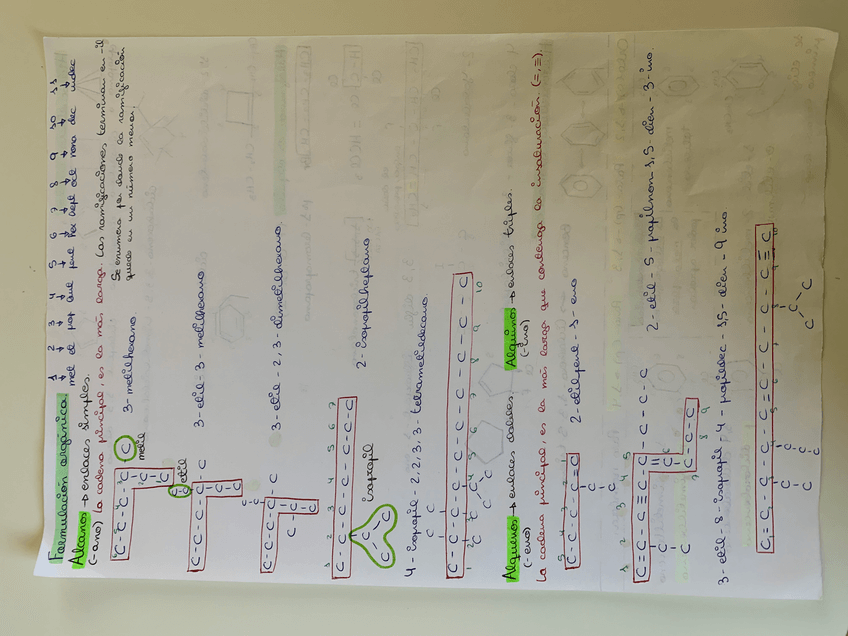 Formulación orgánica.
1 2 3 4 5 6 7 8 9 10 11
met et prop but pent hex hept oct nona dec undec
Alcanos → enlaces simples.
(-ano) La cadena principal, es la más larga. Las ramificaciones terminan en -il
Se enumera por donde la ramificación
quede en un número menor.
3-metilhexano
metil
etil
3-etil-3-metilhexano
3-etil-2,3-dimetilhexano
1 2 3 4 5 6 7
C - C - C - C - C - C - C
isopropil
2-isopropilheptano
4-isopropil-2,2,3,3-tetrametildecano
C - C - C - C - C - C - C - C - C - C
Alquenos → enlaces dobles. Alquinos → enlaces triples.
(-eno) (-ino)
La cadena principal, es la más larga que contenga la insaturación. (=,≡).
5 4 3 2 1
C - C - C - C = C
2-etilpent-1-eno
2-etil-5-propilnon-1,5-dien-3-ino.
3-etil-8-isopropil-4-propildec-1,5-dien-9-ino
C = C - C - C - C = C - C - C - C ≡ C